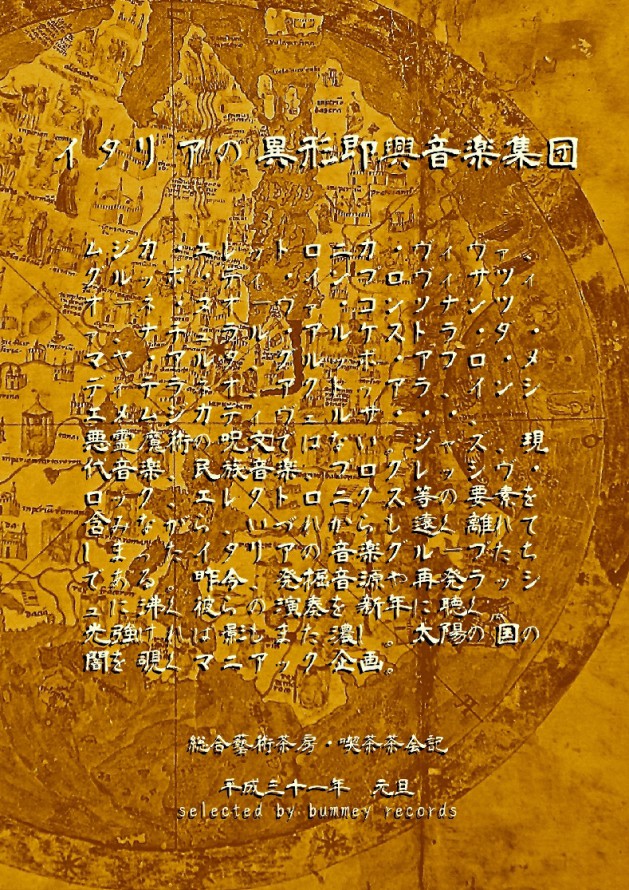 イタリアの異形即興音楽集団
ムジカ・エレットロニカ・ヴィヴァ、
グルッポ・ディ・インプロヴィサツィ
オーネ・ヌオーヴァ・コンソナンツ
ァ、ナチュラル・アルケストラ・ダ・
マヤ・アルタ、グルッポ・アフロ・メ
ディテラネオ、アクトゥアラ、インシ
エメムジカディヴェルサ・・・、
悪霊魔術の呪文ではない。ジャズ、現
代音楽、民族音楽、プログレッシヴ・
ロック、エレクトロニクス等の要素を
含みながら、いづれからも遠く離れて
しまったイタリアの音楽グループたち
である。昨今、発掘音源や再発ラッシ
ュに沸く彼らの演奏を新年に聴く。
光強ければ影もまた濃し。太陽の国の
闇を覗くマニアック企画。
総合藝術茶房・喫茶茶会記
平成三十一年 元旦
selected by bummey records